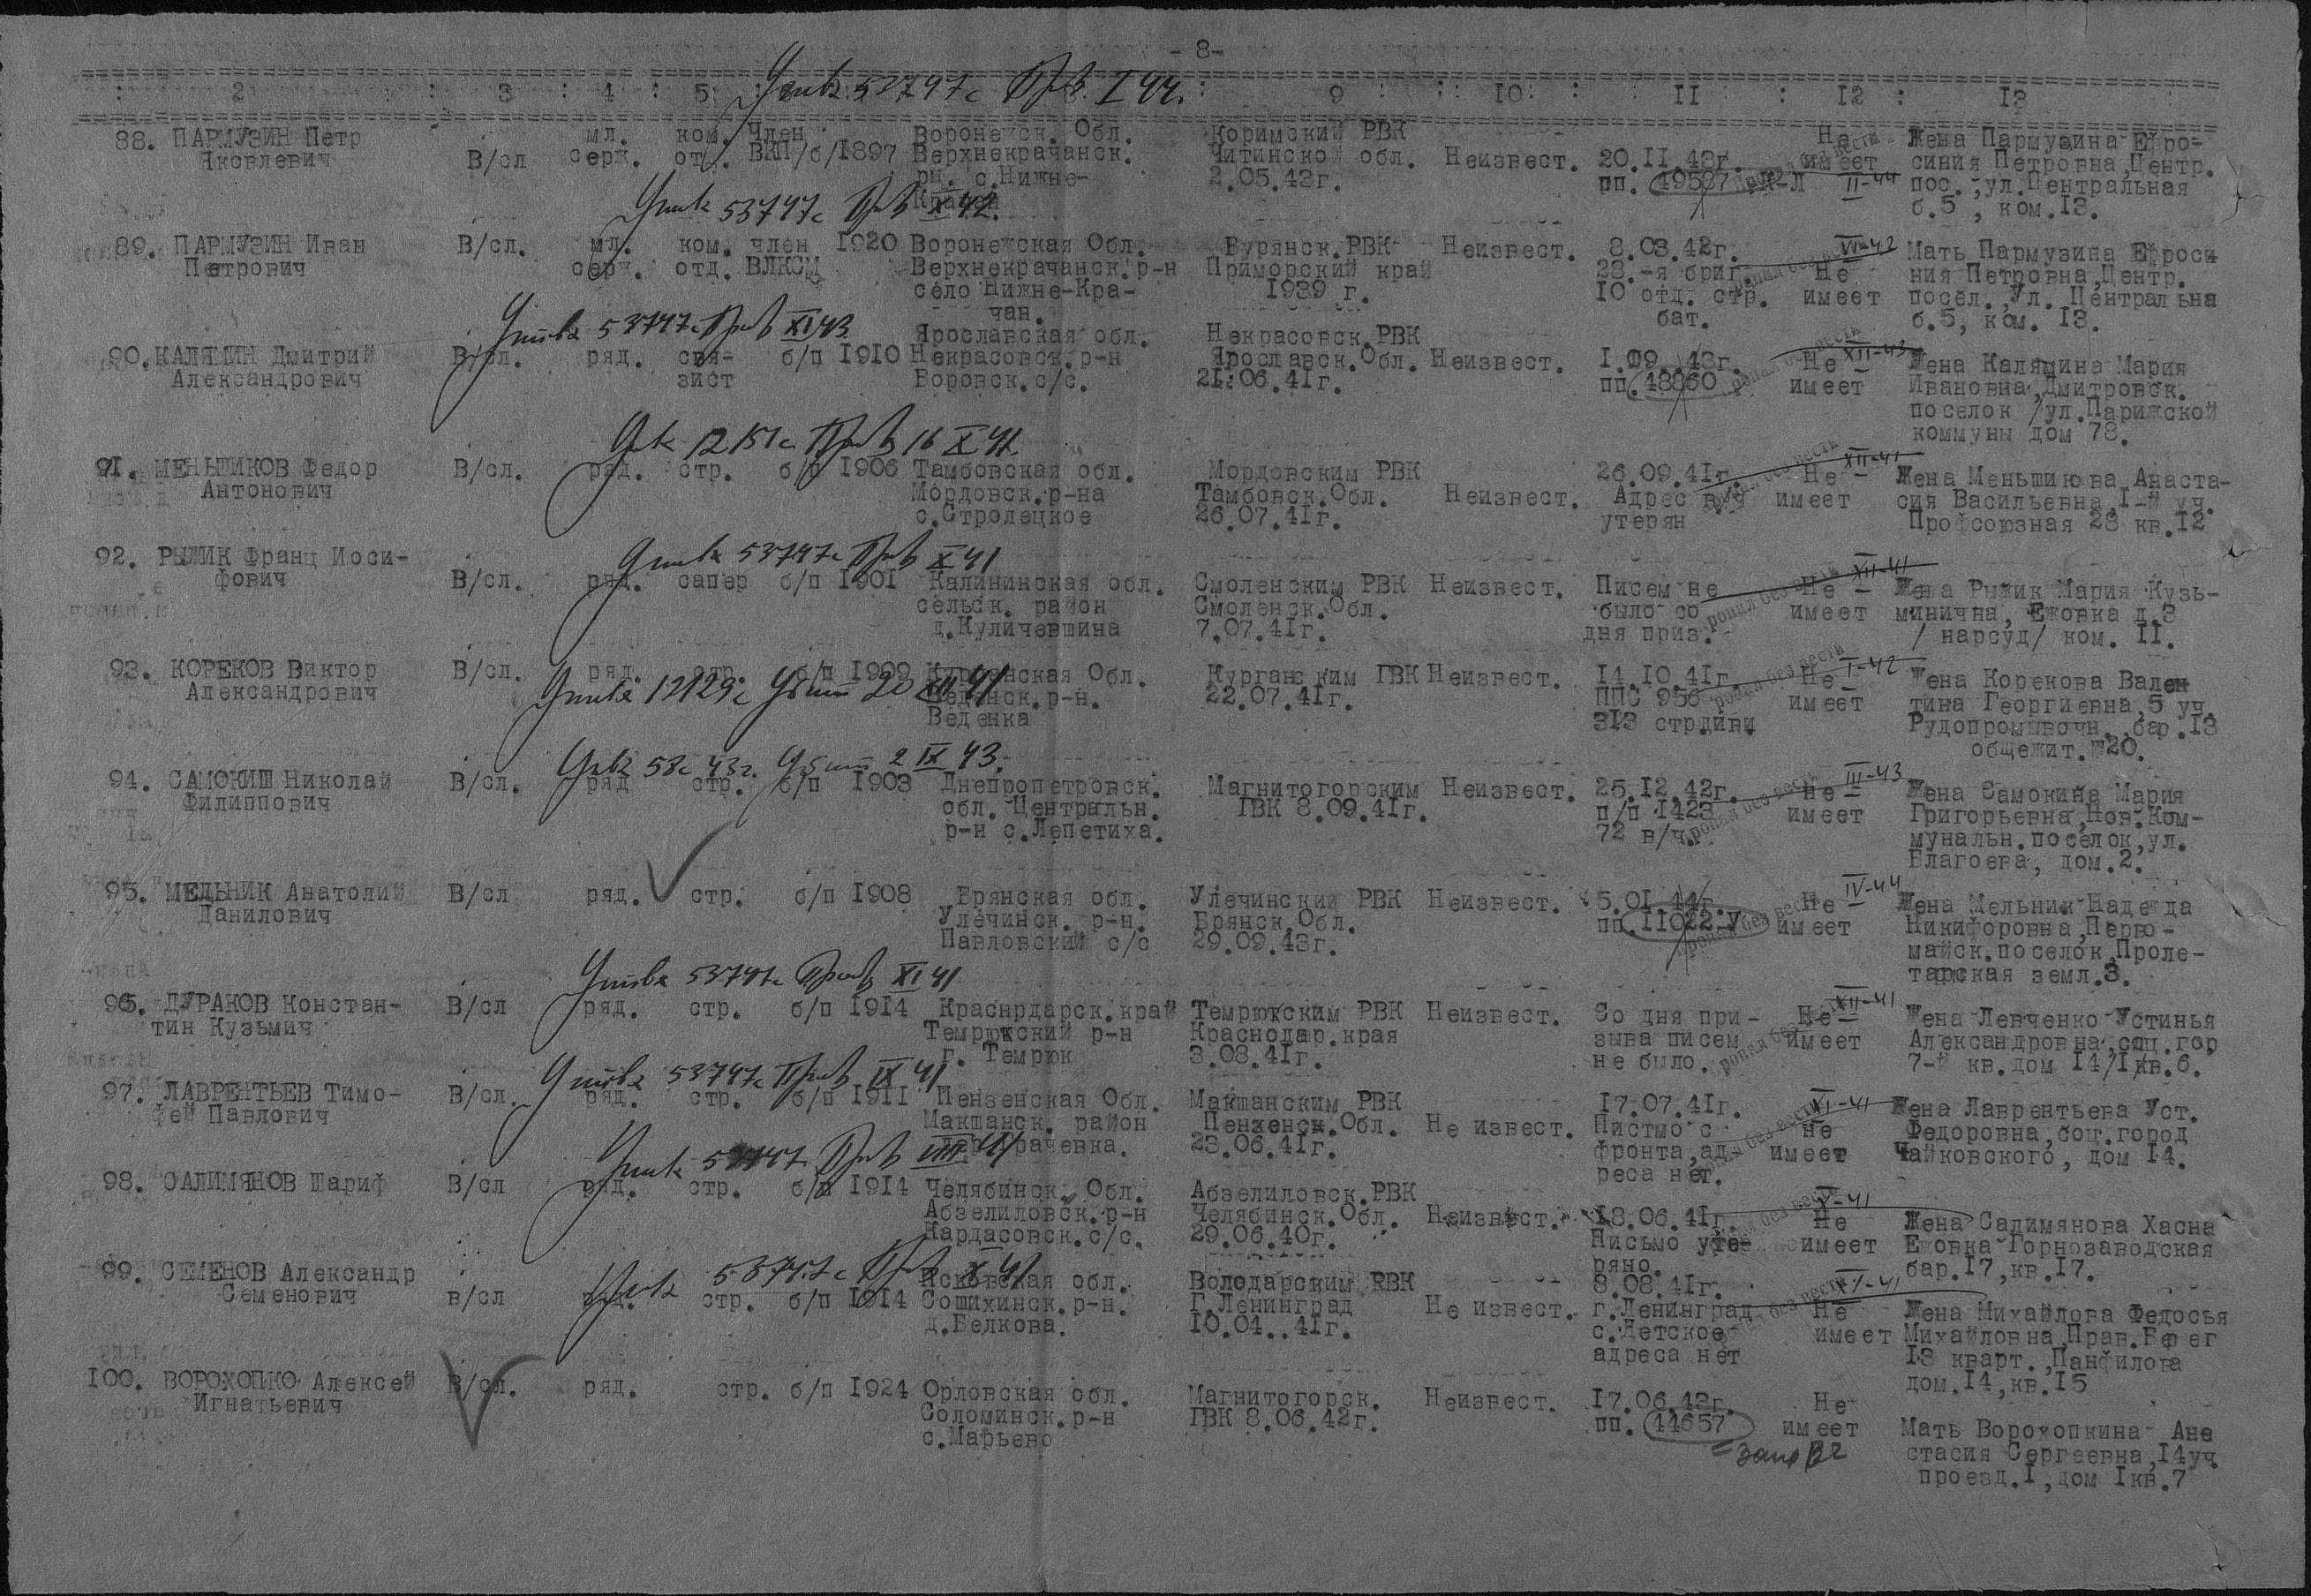 - 8-
2 3 4 5 9 10 11 12 13
88. ПАРМУЗИН Петр Яковлевич В/сл мл. серж. ком. отд. Член ВКП/б/ 1897 Воронежск. Обл. Верхнекрачанск. рн. с.Нижне- Коримский РВК Читинской обл. 2.05.43г. Неизвест. 20.11.43г. пп. 49587 Не имеет II-44 Жена Пармузина Ефро-
синия Петровна,Центр.
пос.,ул.Центральная
б.5 , ком.13.
89. ПАРМУЗИН Иван Петрович В/сл. мл. серж. ком. отд. член ВЛКСМ 1920 Воронежская Обл. Верхнекрачанск.р-н село Нижне-Кра-чан. Бурянск.РВК Приморский край 1939 г. Неизвест. 8.03.42г. 28.-я бриг. 10 отд. стр. бат. Не имеет VI-42 Мать Пармузина Ефроси
ния Петровна,Центр.
посел.,Ул. Центральна
б.5, ком. 13.
90.КАЛЯПИН Дмитрий Александрович В/сл. ряд. свя-зист б/п 1910 Ярославская обл. Некрасовск.р-н Боровск.с/с. Некрасовск.РВК Ярославск.Обл. 21.06.41г. Неизвест. 1.09.43г. пп.48860 Не имеет XII-43 Жена Каляпина Мария
Ивановна,Дмитровск.
поселок /ул.Парижской
коммуны дом 78.
91. МЕНЬШИКОВ Федор Антонович В/сл. ряд. стр. б/п 1906 Тамбовская обл. Мордовск.р-на с.Стролецкое Мордовским РВК Тамбовск.Обл. 26.07.41г. Неизвест. 26.09.41г. Адрес в/ч утерян Не имеет XII-41 Жена Меньшикова Анаста-
сия Васильевна,I-й уч.
Профсоюзная 28 кв.12
92. РЫЖИК Франц Иоси-фович В/сл. ряд. сапер б/п 1901 Калининская обл. сельск. район д.Куличевшина Смоленским РВК Смоленск.Обл. 7.07.41г. Неизвест. Писем не было со дня приз. Не имеет XII-41 Жена Рыжик Мария Кузь-
минична, Ежовка д.3
/ нарсуд/ ком. 11.
93. КОРЕКОВ Виктор Александрович В/сл. ряд. стр. б/п 1909 Обл. р-н. Веденка Курганским ГВК 22.07.41г. Неизвест. 14.10.41г. ППС 956 313 стр.диви Не имеет I-42 Жена Корекова Вален
тина Георгиевна,5 уч.
Рудопромывочн.,бар.13
общежит.№20.
94. САМОКИШ Николай Филиппович В/сл. ряд стр. б/п 1903 Днепропетровск. обл. Центральн. р-н с.Лепетиха. Магнитогорским ГВК 8.09.41г. Неизвест. 25.12.42г. п/п 1423 72 в/ч. не имеет III-43 Жена Самокиша Мария
Григорьевна,Нов.Ком-
мунальн.поселок,ул.
Благоева, дом.2.
95. МЕЛЬНИК Анатолий Данилович В/сл ряд. стр. б/п 1908 Брянская обл. Улечинск. р-н. Павловский с/с Улечинский РВК Брянск.Обл. 29.09.43г. Неизвест. 5.01.44г. пп.11022-У Не имеет IV-44 Жена Мельник Надежда
Никифоровна,Перво-
майск.поселок,Проле-
тарская земл.3.
96. ДУРАКОВ Констан-тин Кузьмич В/сл ряд. стр. б/п 1914 Краснрдарск.край Темрюкский р-н г. Темрюк Темрюкским РВК Краснодар.края 3.08.41г. Неизвест. Со дня при-зыва писем не было. Не имеет XII-41 Жена Левченко Устинья
Александровна,соц.гор
7-й кв.дом 14/1,кв.6.
97. ЛАВРЕНТЬЕВ Тимо-фей Павлович В/сл. ряд. стр. б/п 1911 Пензенская Обл. Макшанск. район Макшанским РВК Пензенск.Обл. 23.06.41г. Не извест. 17.07.41г. Пистмо с фронта,ад-реса нет. не имеет XI-41 Жена Лаврентьева Уст.
Федоровна,соц.город
Чайковского, дом 14.
98. САЛИМЯНОВ Шариф В/сл ряд. стр. б/п 1914 Челябинск. Обл. Абзелиловск.р-н Кардасовск.с/с. Абзелиловск.РВК Челябинск.Обл. 29.06.40г. Неизвест. 18.06.41г. Письмо уте-ряно. Не имеет X-41 Жена Салимянова Хасна
Ежовка Горнозаводская
бар.17,кв.17.
99. СЕМЕНОВ Александр Семенович в/сл ряд. стр. б/п 1914 Псковская обл. Сошихинск.р-н. д.Белкова. Володарским РВК Г.Ленинград 10.04..41г. Не извест. 8.08.41г. г.Ленинград с.Детское адреса нет Не имеет XI-41 Жена Михайлова Федосья
Михайловна,Прав.Берег
13 кварт.,Панфилова
дом.14,кв.15
100. ВОРОХОПКО Алексей Игнатьевич В/сл. ряд. стр. б/п 1924 Орловская обл. Соломинск.р-н с.Марьево Магнитогорск. ГВК 8.06.42г. Неизвест. 17.06.43г. пп. 44657 Не имеет Мать Ворохопкина Ана
стасия Сергеевна,14уч.
проезд.1,дом 1кв.7